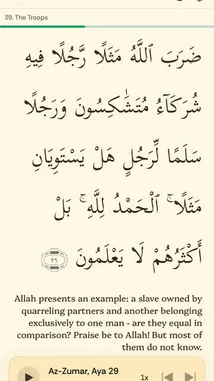 39. The Troops
ضَرَبَ ٱللَّهُ مَثَلًا رَّجُلًا فِيهِ
شُرَكَآءُ مُتَشَٰكِسُونَ وَرَجُلًا
سَلَمًا لِّرَجُلٍ هَلْ يَسْتَوِيَانِ
مَثَلًا ۚ ٱلْحَمْدُ لِلَّهِ ۚ بَلْ
أَكْثَرُهُمْ لَا يَعْلَمُونَ ٢٩
Allah presents an example: a slave owned by
quarreling partners and another belonging
exclusively to one man - are they equal in
comparison? Praise be to Allah! But most of
them do not know.
Az-Zumar, Aya 29
1x